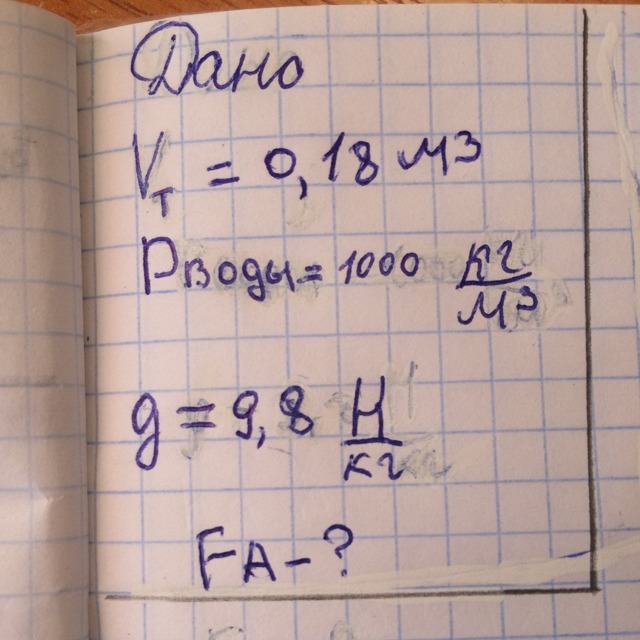 Дано
Vт = 0,18 м3
Рводы = 1000 кг/м3
g = 9,8 Н/кг
FА - ?